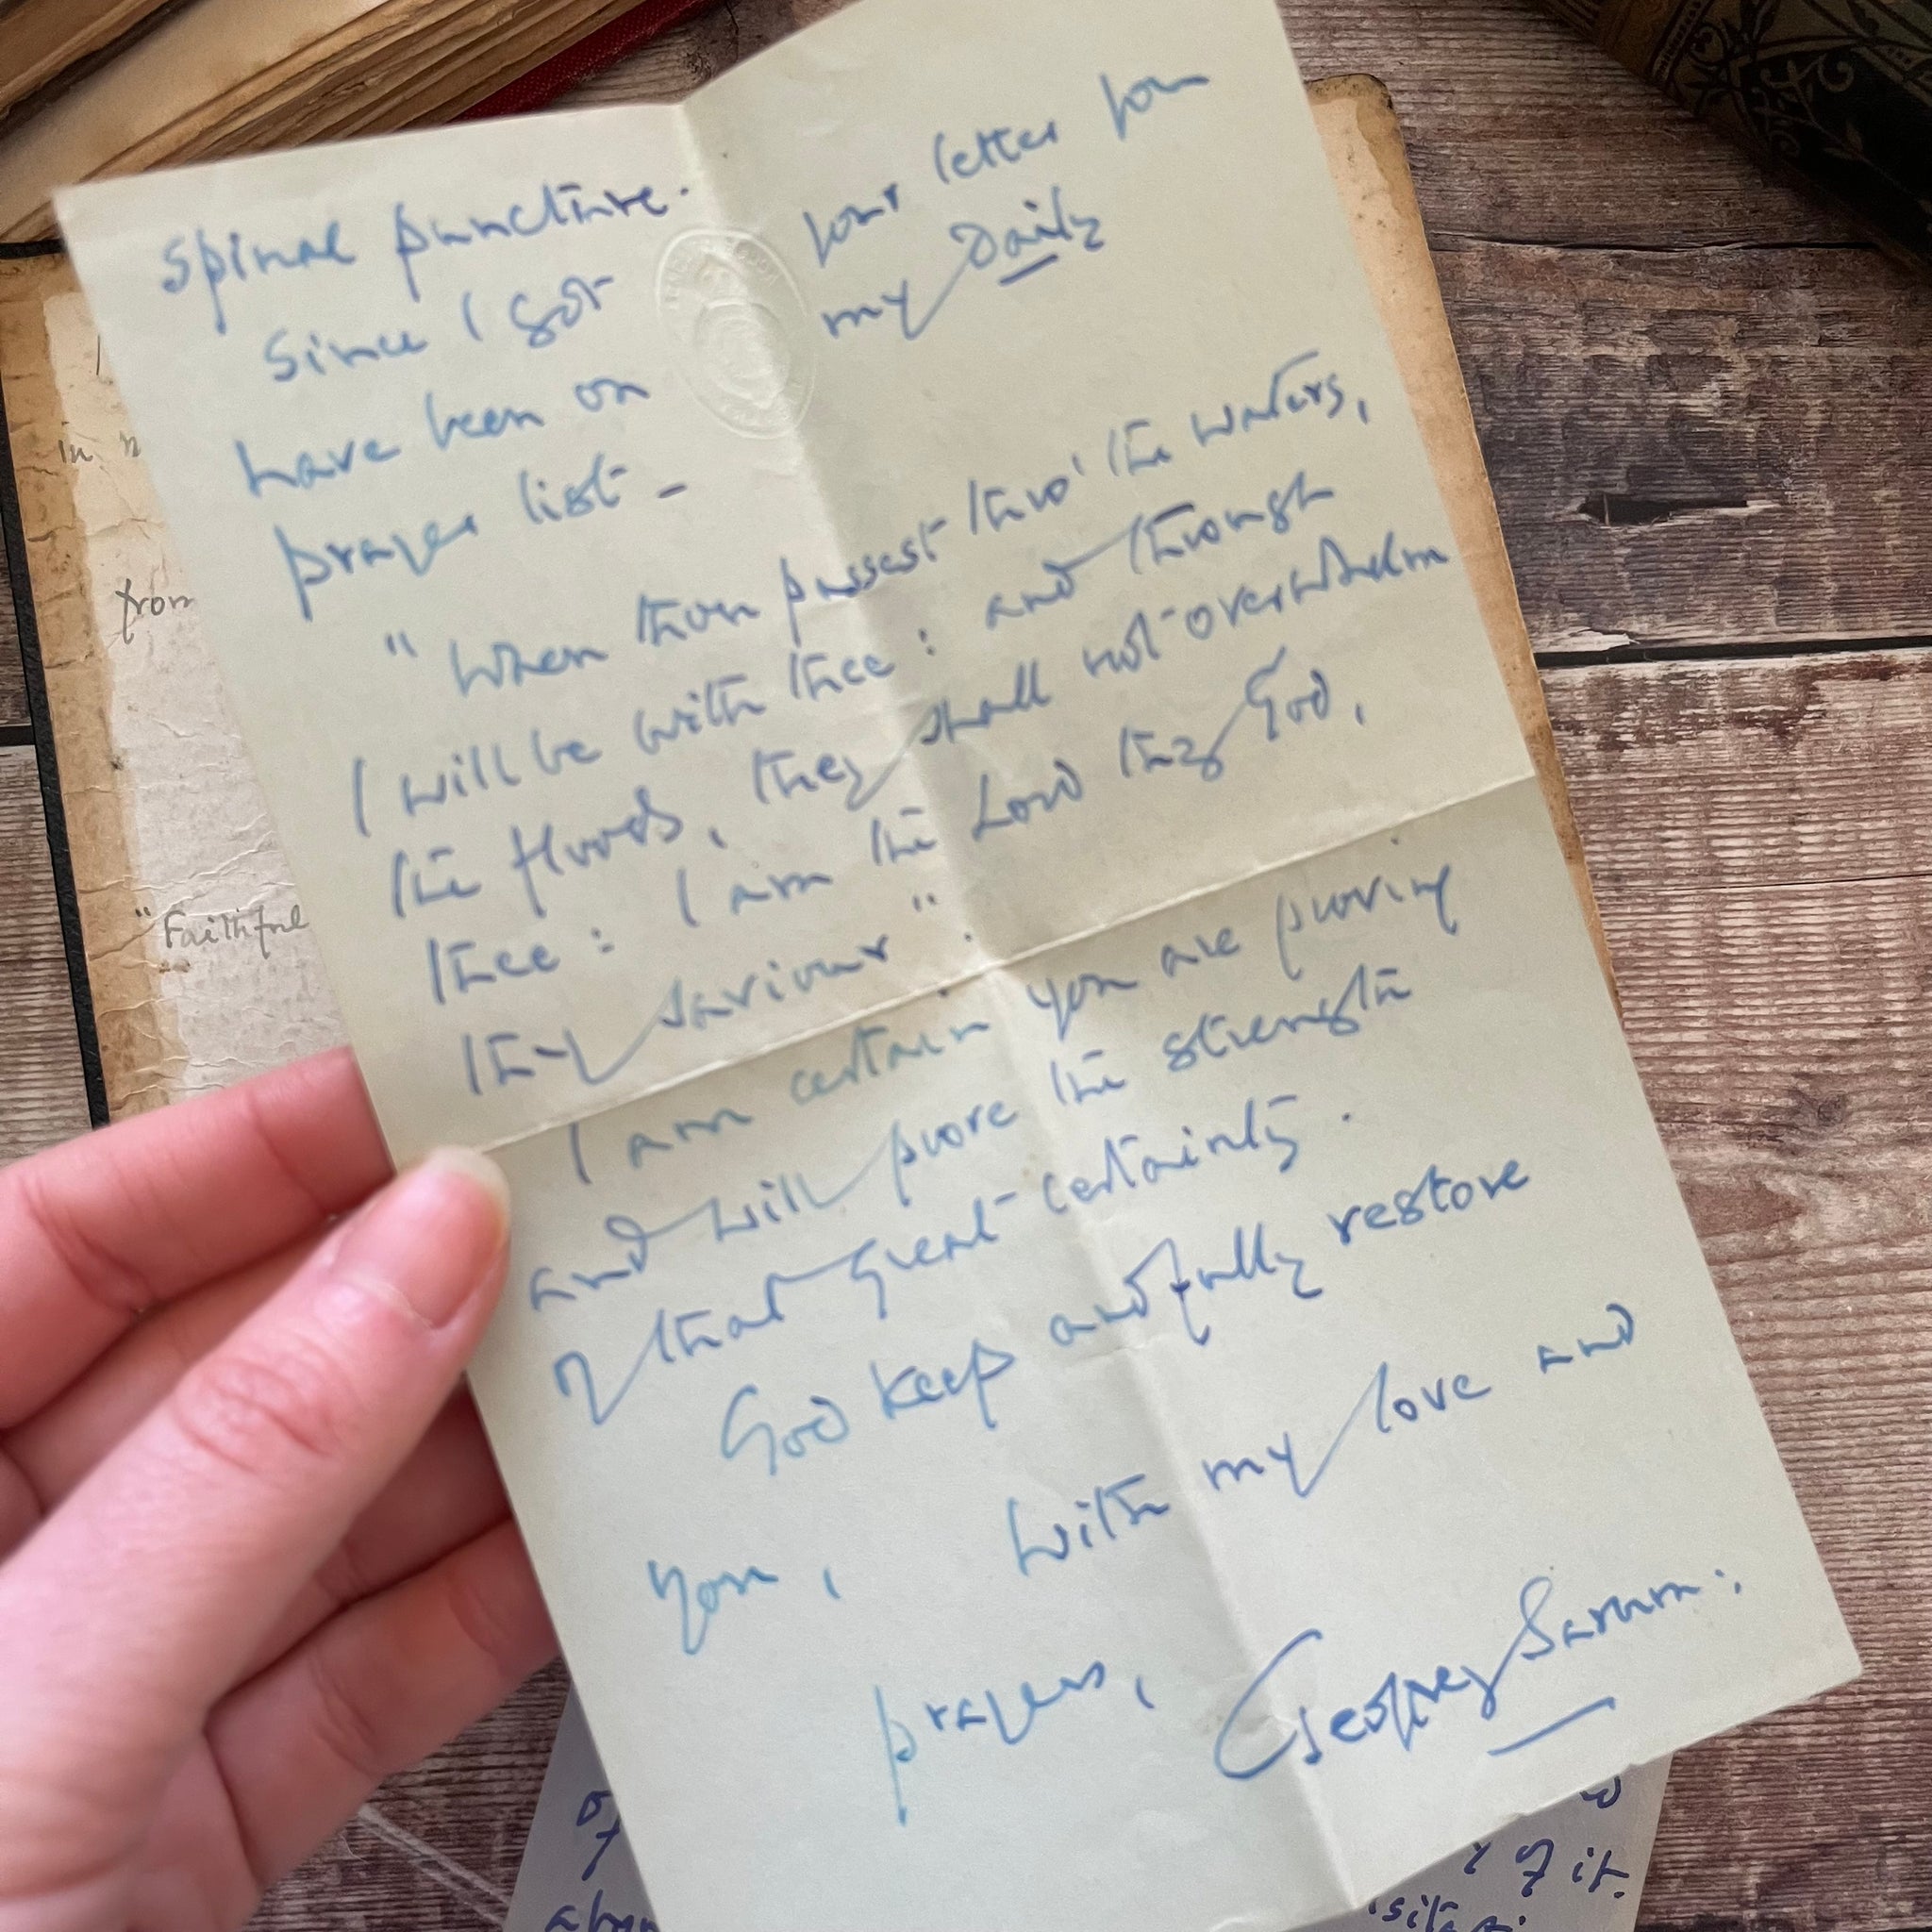 spinal puncture.
Since I got your letter you
have been on my Daily
prayer list -
"When thou passest thro' the waters,
I will be with thee: and through
the floods, they shall not overwhelm
thee: I am the Lord thy God,
thy Saviour".
I am certain you are proving
and will prove the strength
of that great certainty.
God keep and fully restore
you, with my love and
prayers,
Geoffrey Sarum:
in
from
"Faithful
of
of it.